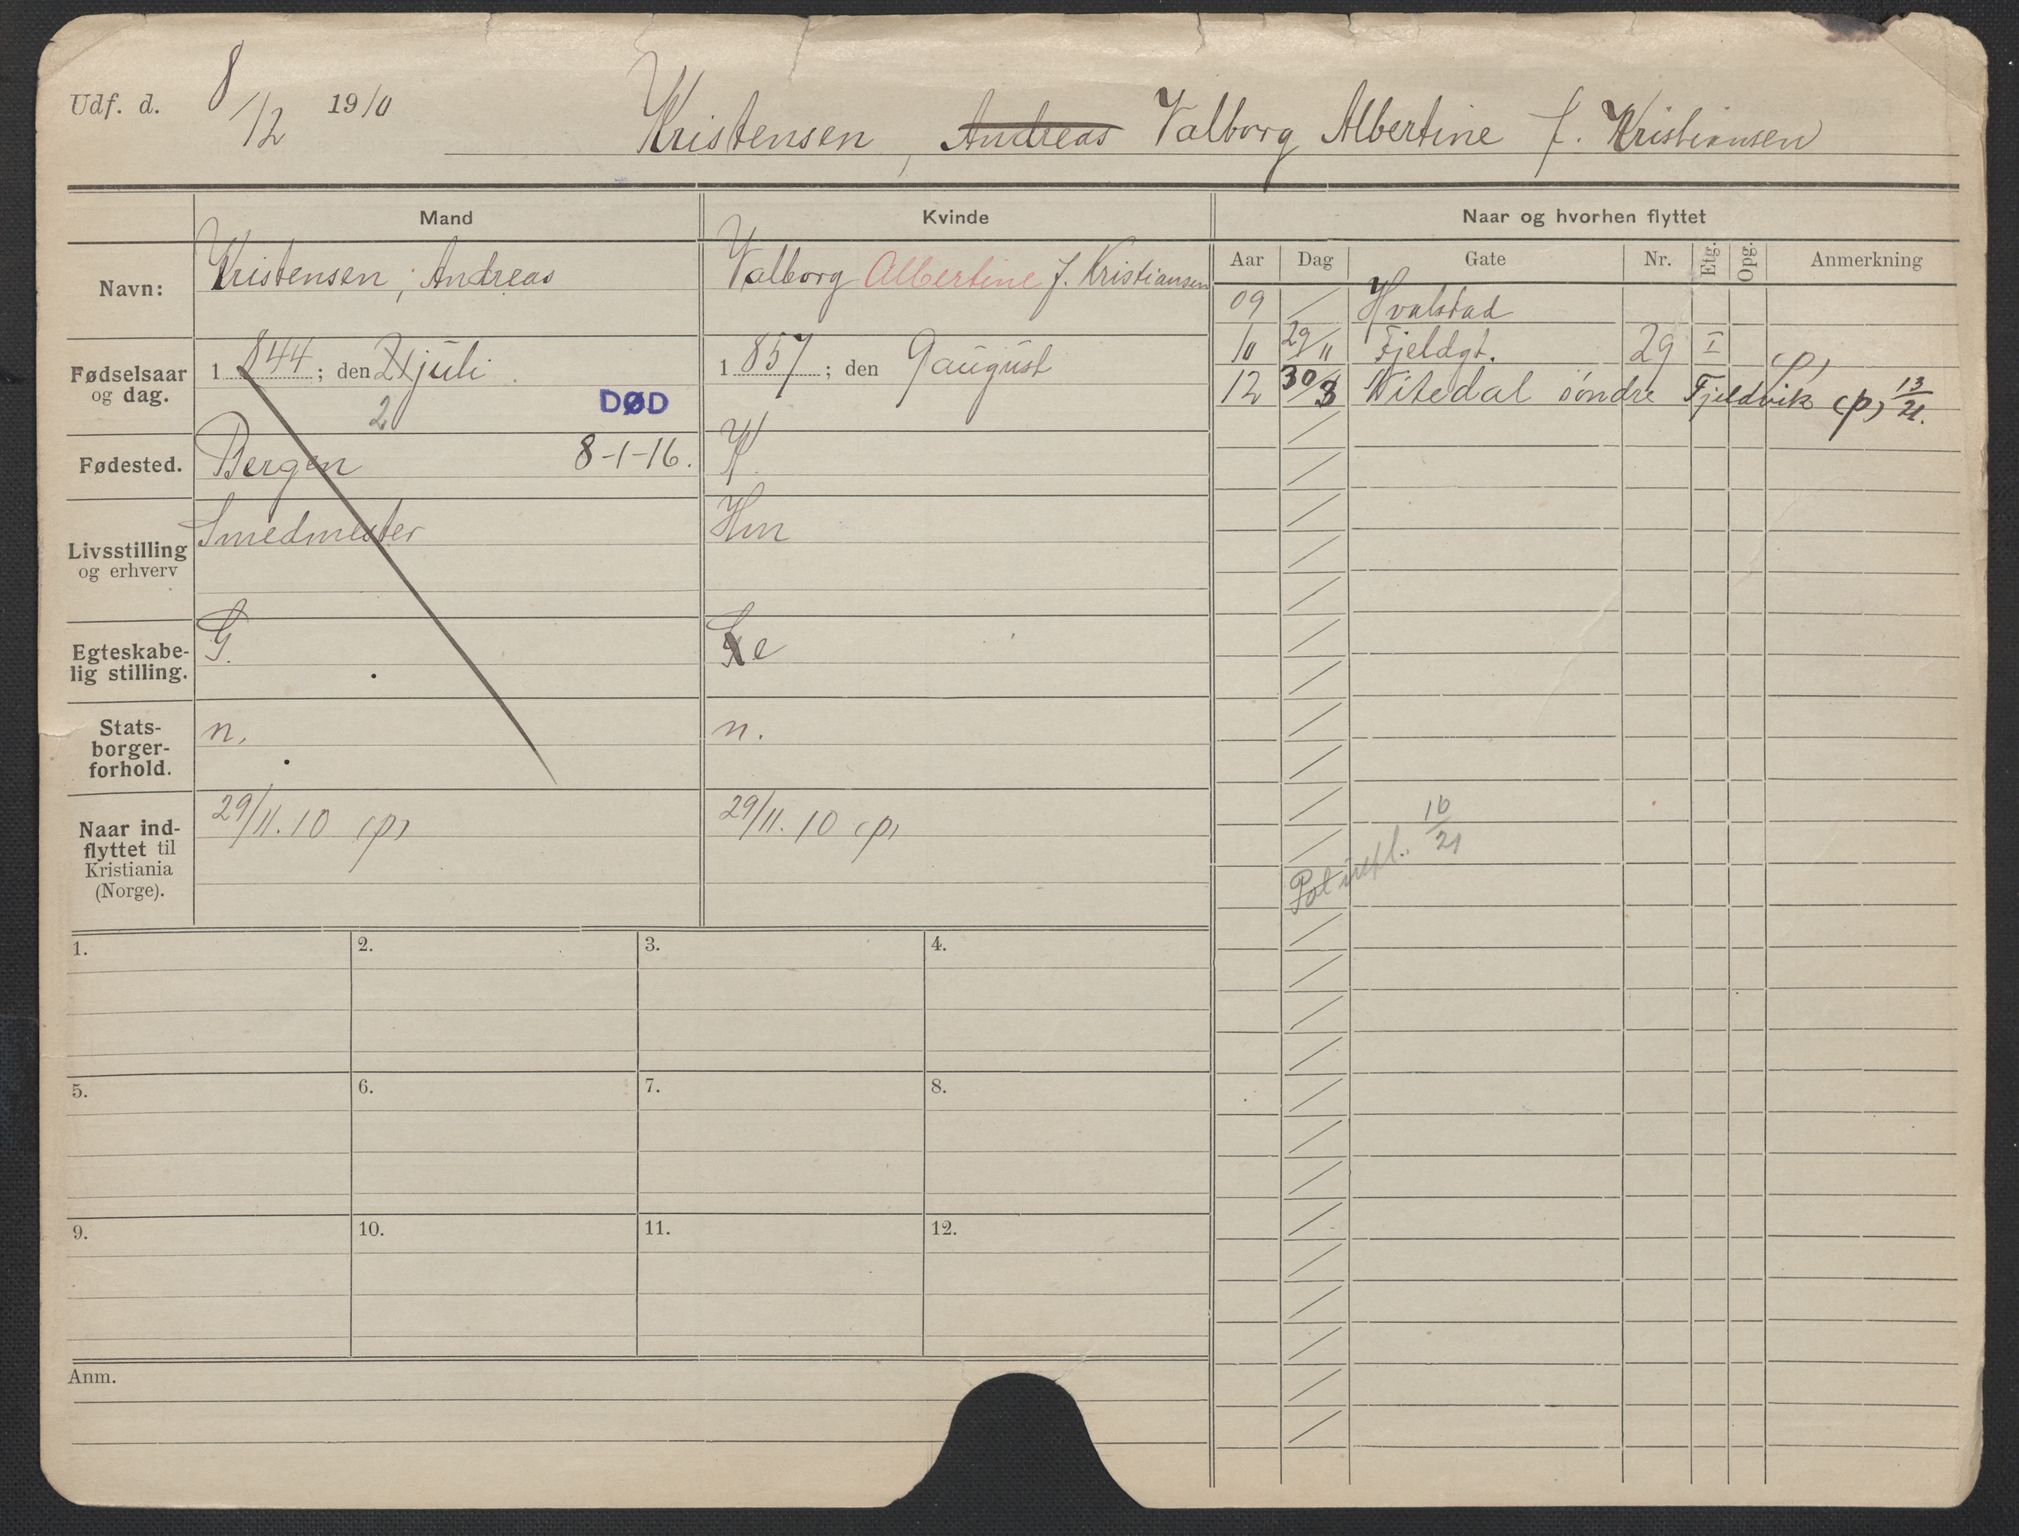 Udf. d. 8/12 1910
Kristensen, Andreas Valborg Albertine f. Kristiansen
Mand
Kvinde
Naar og hvorhen flyttet
Navn:
Kristensen, Andreas
Valborg Albertine f. Kristiansen
Fødselsaar og dag.
1844; den 21 juli
2
DØD
1857; den 9 august
Fødested.
Bergen
8-1-16.
K.
Livsstilling og erhverv
Smedmester
Hm
Egteskabelig stilling.
G.
e
Statsborgerforhold.
n.
n.
Naar indflyttet til Kristiania (Norge).
29/11.10 (p)
29/11.10 (p)
Aar Dag Gate Nr. Etg. Opg. Anmerkning
09 Hvalstad
10 29/11 Fjeldgt. 29 I (p)
12 30/3 Nitedal søndre Fjeldvik (p) 13/21.
16/21
1. 2. 3. 4.
5. 6. 7. 8.
9. 10. 11. 12.
Anm.